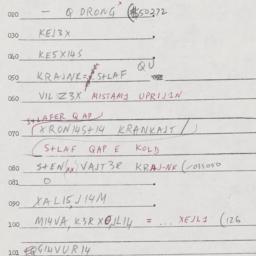 020 — Q DRONG (#50272
030 KEJ3X
040 KE5X14S
QU
050 KRAJNK= S+LAF
060 VILZ3X MISTAMJ UPRIJ1N
S+LAFER QAP
070 XRON14S+14 KRANKAJT /
(S+LAF QAP E KOLD
080 S+EN VAJT3R KRAJ-NK
081 O
090 XAL15,J14M
100 M14VA, K3RX JL14 = ... XEJL1 (126
101 G14VUR14